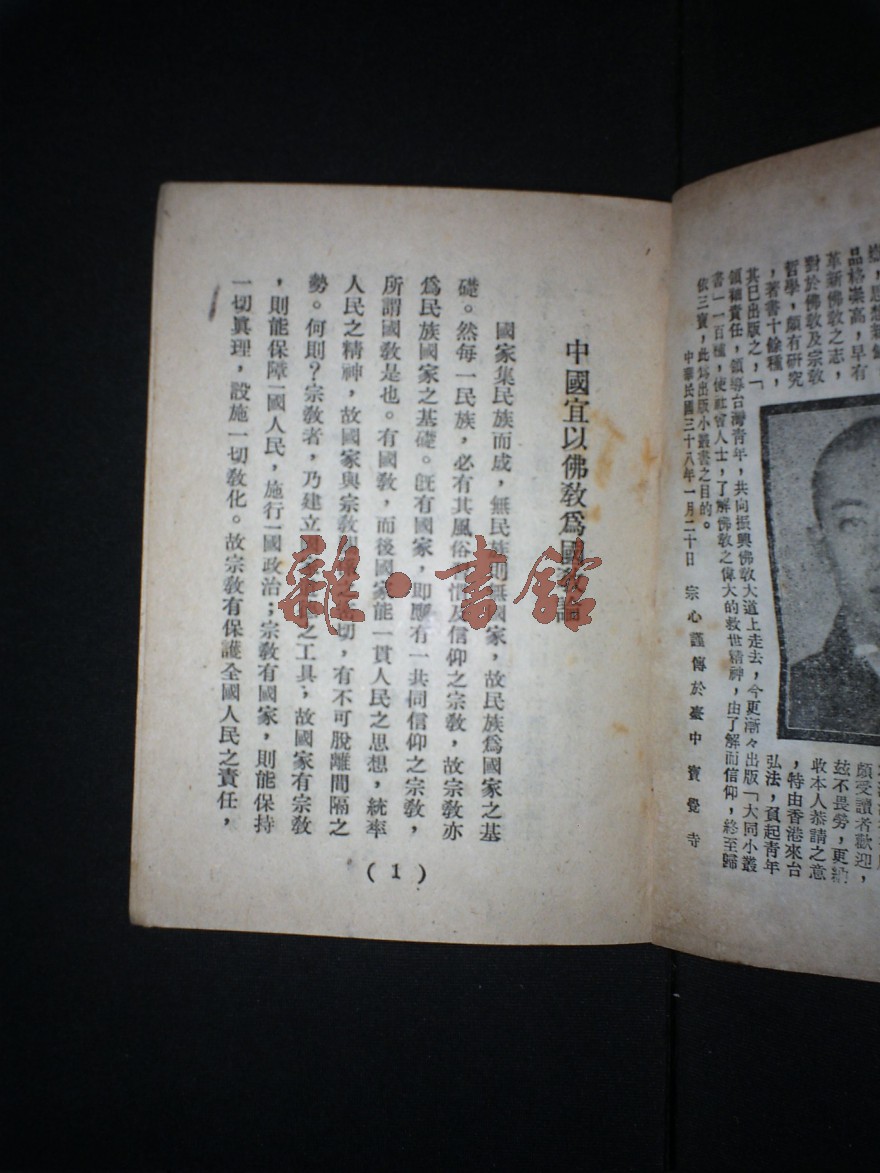 品格崇高，早有
革新佛教之志，
對於佛教及宗教
哲學，頗有研究
，著書十餘種，
其已出版之，「
領袖責任，領導台灣青年，共向振興佛教大道上走去，今更漸々出版「大同小叢
書」一百種，使社會人士，了解佛教之偉大的救世精神，由了解而信仰，終至歸
依三寶，此為出版小叢書之目的。
中華民國三十八年一月二十日 宗心謹傳於臺中寶覺寺
頗受讀者歡迎，
茲不畏勞，更納
收本人恭請之意
，特由香港來台
弘法，負起青年
中國宜以佛教為國教論
國家集民族而成，無民族則無國家，故民族為國家之基
礎。然每一民族，必有其風俗習慣及信仰之宗教，故宗教亦
為民族國家之基礎。既有國家，即應有一共同信仰之宗教，
所謂國教是也。有國教，而後國家能一貫人民之思想，統率
人民之精神，故國家與宗教之密切，有不可脫離間隔之
勢。何則？宗教者，乃建立之工具；故國家有宗教
，則能保障一國人民，施行一國政治；宗教有國家，則能保持
一切眞理，設施一切敎化。故宗教有保護全國人民之責任，
(1)
雜·書館